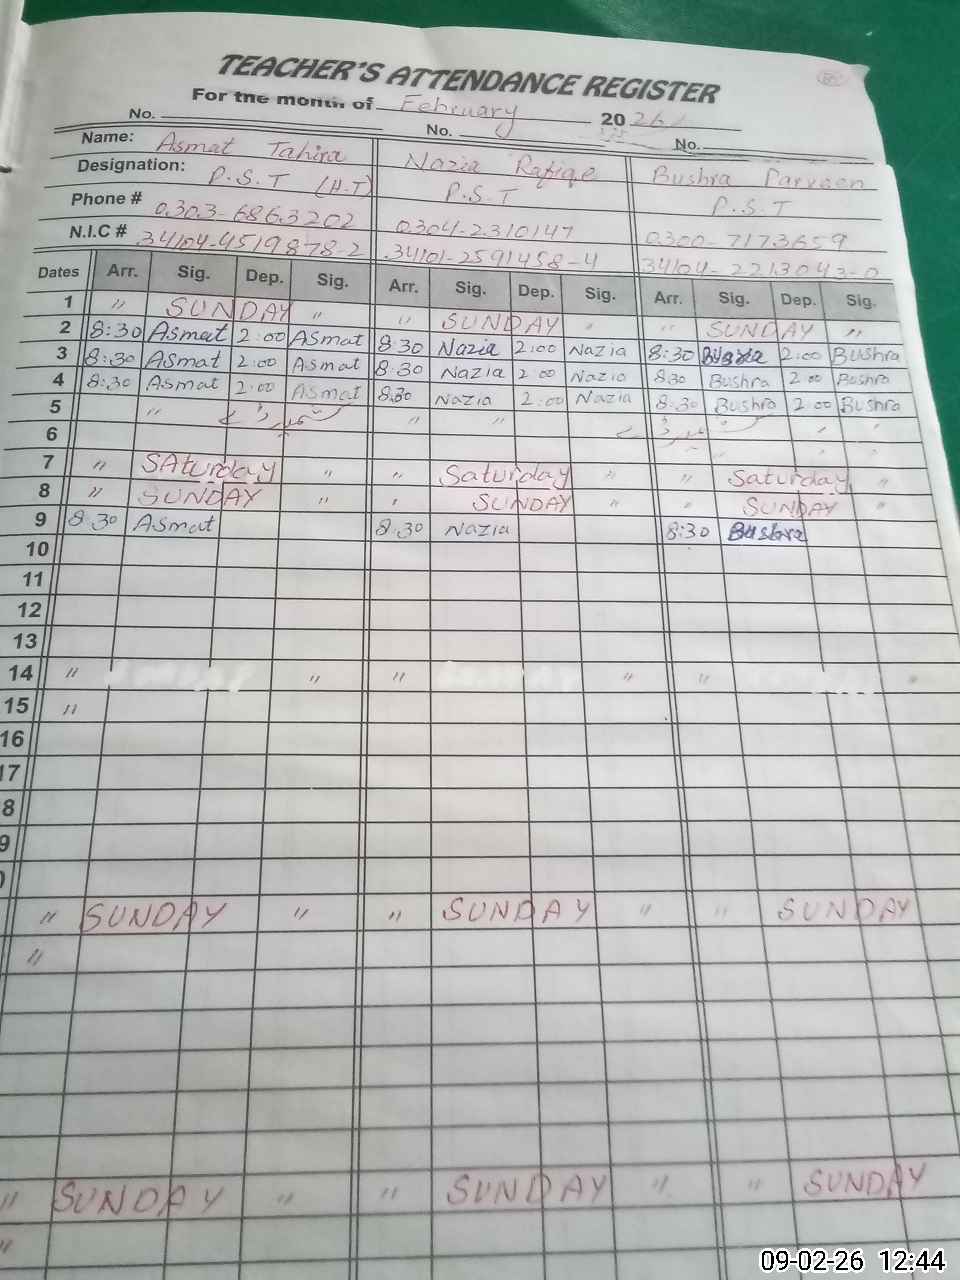 TEACHER'S ATTENDANCE REGISTER
For the month of February 2026
No. No. No.
Name: Asmat Tahira Nazia Rafiqe Bushra Parveen
Designation: P.S.T (H.T) P.S.T P.S.T
Phone # 0303-6863202 0304-2310147 0300-7173659
N.I.C # 34104-4519878-2 34101-2591458-4 34104-2213043-0
Dates Arr. Sig. Dep. Sig. Arr. Sig. Dep. Sig. Arr. Sig. Dep. Sig.
1 " SUNDAY " " SUNDAY " " SUNDAY "
2 8:30 Asmat 2:00 Asmat 8:30 Nazia 2:00 Nazia 8:30 Bushra 2:00 Bushra
3 8:30 Asmat 2:00 Asmat 8:30 Nazia 2:00 Nazia 8:30 Bushra 2:00 Bushra
4 8:30 Asmat 2:00 Asmat 8:30 Nazia 2:00 Nazia 8:30 Bushra 2:00 Bushra
5 " " "
6
7 " SAturday " " Saturday " " Saturday "
8 " SUNDAY " " SUNDAY " " SUNDAY "
9 8:30 Asmat 8:30 Nazia 8:30 Bushra
10
11
12
13
14 " " " " " "
15 "
16
17
8
9
" SUNDAY " " SUNDAY " " SUNDAY
"
" SUNDAY " " SUNDAY " " SUNDAY
"
09-02-26 12:44